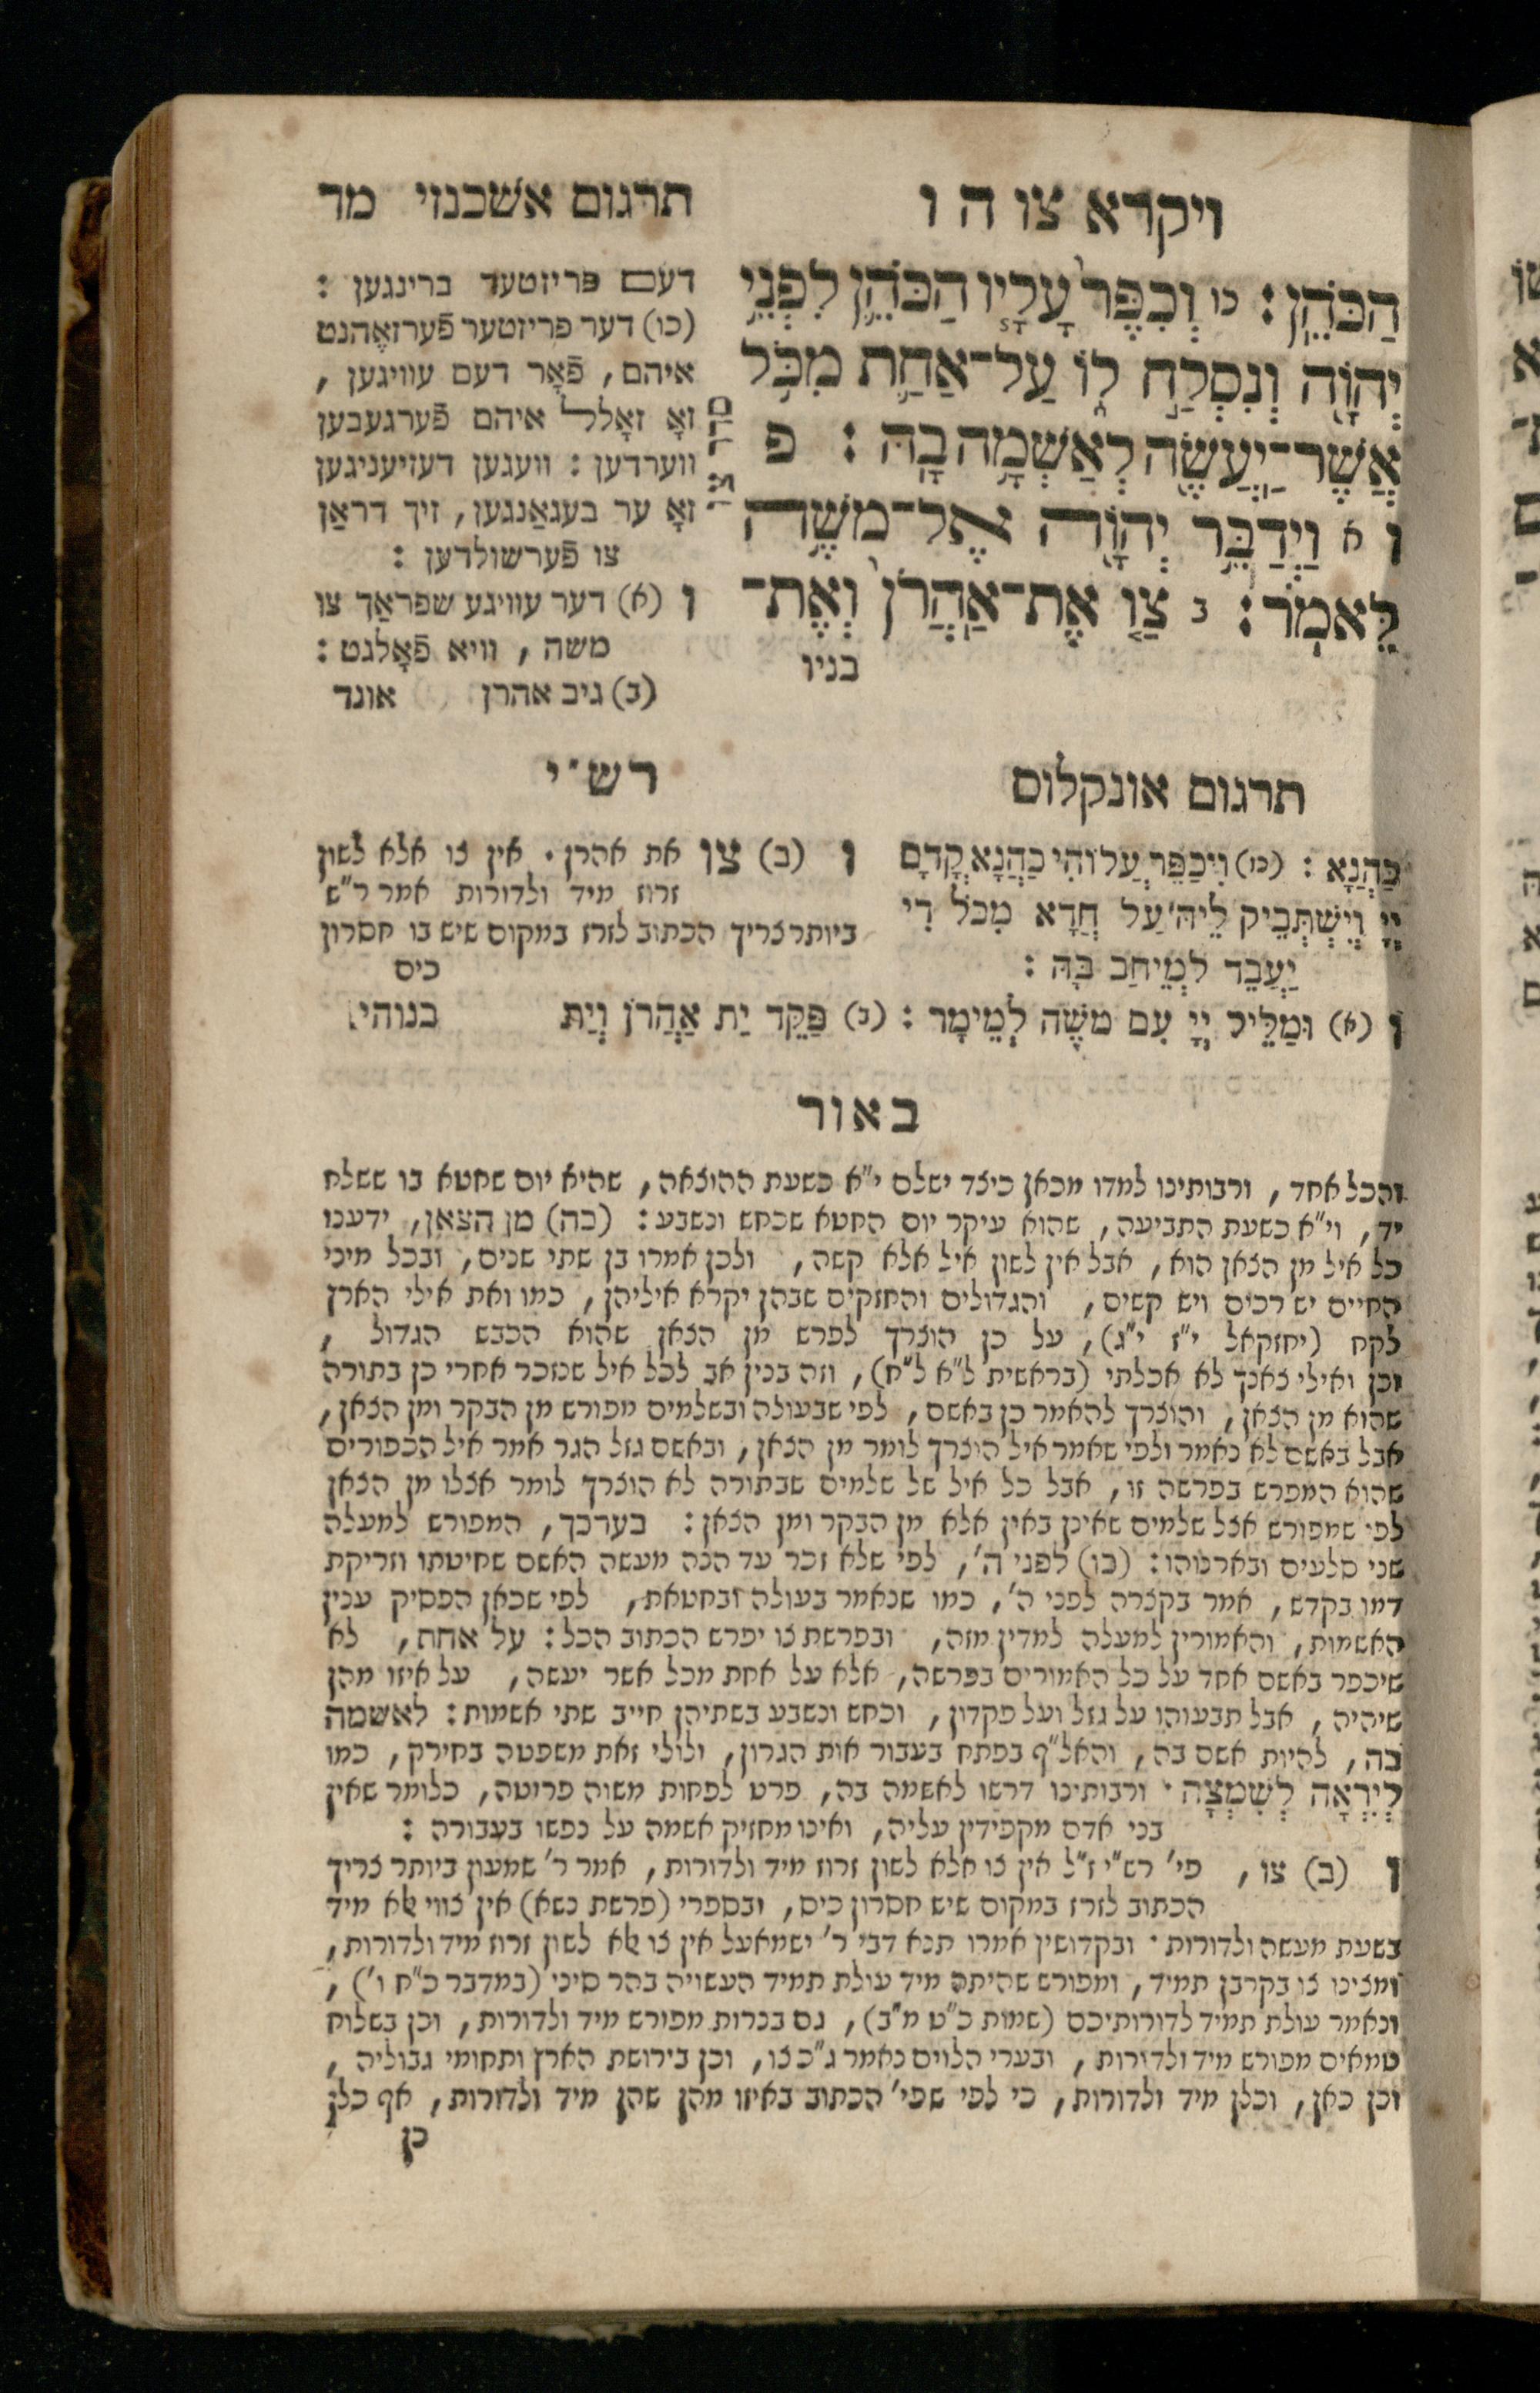 ויקרא צו ה ו
תרגום אשכנזי מד
הַכֹּהֵֽן׃ כו וְכִפֶּר֩ עָלָ֨יו הַכֹּהֵ֜ן לִפְנֵ֤י
יְהֹוָה֙ וְנִסְלַ֣ח ל֔וֹ עַל־אַחַ֛ת מִכֹּ֥ל
אֲשֶֽׁר־יַעֲשֶׂ֖ה לְאַשְׁמָ֥ה בָֽהּ׃ פ
ו א וַיְדַבֵּ֥ר יְהֹוָ֖ה אֶל־מֹשֶׁ֥ה
לֵּאמֹֽר׃ ב צַ֤ו אֶֽת־אַהֲרֹן֙ וְאֶת־
בניו
דעם פריזטער ברינגען :
(כו) דער פריזטער פֿערזאֶהנט
איהם, פֿאָר דעם עוויגען ,
זאָ זאָלל איהם פֿערגעבען
ווערדען : וועגען דעזיעניגען
זאָ ער בעגאַנגען, זיך דראַן
צו פֿערשולדען :
ו (א) דער עוויגע שפראַך צו
משה , וויא פֿאָלגט :
(ב) גיב אהרן אונד
תרגום אונקלוס
כַּהֲנָא : (כו) וִיכַפֵּר עֲלוֹהִי כַּהֲנָא קֳדָם
יְיָ וְיִשְׁתְּבֵיק לֵיהּ עַל חֲדָא מִכֹּל דִּי
יַעֲבֵד לְמֵיחַב בָּהּ :
ו (א) וּמַלֵּיל יְיָ עִם מֹשֶׁה לְמֵימָר : (ב) פַּקֵּד יַת אַהֲרֹן וְיַת
בנוהי
רש״י
ו (ב) צו את אהרן . אין צו אלא לשון
זרוז מיד ולדורות אמר ר״ש
ביותר צריך הכתוב לזרז במקום שיש בו חסרון
כיס
באור
והכל אחד, ורבותינו למדו מכאן כיצד ישלם י״א כשעת ההוצאה, שהיא יום שחטא בו ששלח
יד, וי״א כשעת התביעה, שהוא עיקר יום החטא שכחש ונשבע : (כה) מן הצאן, ידענו
כל איל מן הצאן הוא, אבל אין לשון איל אלא קשה, ולכן אמרו בן שתי שנים, ובכל מיני
החיים יש רכים ויש קשים, והגדולים והחזקים שבהן יקרא איליהן, כמו ואת אילי הארץ
לקח (יחזקאל י״ז י״ג), על כן הוצרך לפרש מן הצאן שהוא הכבש הגדול ,
וכן ואילי צאנך לא אכלתי (בראשית ל״א ל״ח), וזה בנין אב לכל איל שנזכר אחרי כן בתורה
שהוא מן הצאן, והוצרך להאמר כן באשם, לפי שבעולה ובשלמים מפורש מן הבקר ומן הצאן,
אבל באשם לא נאמר ולפי שאמר איל הוצרך לומר מן הצאן, ובאשם גזל הגר אמר איל הכפורים
שהוא המפרש בפרשה זו, אבל כל איל של שלמים שבתורה לא הוצרך לומר אצלו מן הצאן
לפי שמפורש אצל שלמים שאינן באין אלא מן הבקר ומן הצאן : בערכך, המפורש למעלה
שני סלעים ובארנוהו : (כו) לפני ה׳, לפי שלא זכר עד הנה מעשה האשם שחיטתו וזריקת
דמו בקדש, אמר בקצרה לפני ה׳, כמו שנאמר בעולה ובחטאת, לפי שכאן הפסיק ענין
האשמות, והאמורין למעלה למדין מזה, ובפרשת צו יפרש הכתוב הכל : על אחת, לא
שיכפר באשם אחד על כל האמורים בפרשה, אלא על אחת מכל אשר יעשה, על איזו מהן
שיהיה, אבל תבעוהו על גזל ועל פקדון, וכחש ונשבע בשתיהן חייב שתי אשמות : לאשמה
בה, להיות אשם בה, והאל״ף בפתח בעבור אות הגרון, ולולי זאת משפטה בחירק, כמו
לְיִרְאָה לְשִׁמְצָה . ורבותינו דרשו לאשמה בה, פרט לפחות משוה פרוטה, כלומר שאין
בני אדם מקפידין עליה, ואינו מחזיק אשמה על נפשו בעבורה :
ו (ב) צו, פי׳ רש״י ז״ל אין צו אלא לשון זרוז מיד ולדורות, אמר ר׳ שמעון ביותר צריך
הכתוב לזרז במקום שיש חסרון כיס, ובספרי (פרשת נשא) אין צווי אלא מיד
בשעת מעשה ולדורות . ובקדושין אמרו תנא דבי ר׳ ישמעאל אין צו אלא לשון זרוז מיד ולדורות,
ומצינו צו בקרבן תמיד, ומפורש שהיתה מיד עולת תמיד העשויה בהר סיני (במדבר כ״ח ו׳) ,
ונאמר עולת תמיד לדורותיכם (שמות כ״ט מ״ב), גם בנרות מפורש מיד ולדורות, וכן בשלוח
טמאים מפורש מיד ולדורות, ובערי הלוים נאמר ג״כ צו, וכן בירושת הארץ ותחומי גבוליה ,
וכן כאן, וכלן מיד ולדורות, כי לפי שפי׳ הכתוב באיזו מהן שהן מיד ולדורות, אף כלן
כן